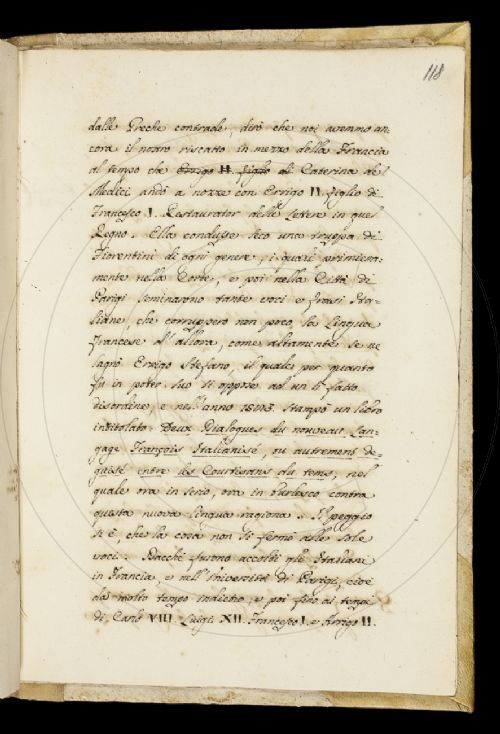 118
dalle Greche contrade, dirò che noi avemmo an-
cora il nostro riscatto in mezzo della Francia
al tempo che Errigo II. figlio di Caterina de'
Medici andò a nozze con Errigo II. figlio di
Francesco I. Restaurator delle Lettere in quel
Regno. Ella condusse seco una truppa di
Fiorentini di ogni genere, i quali primiera-
mente nella Corte, e poi nella Città di
Parigi seminarono tante voci e frasi Ita-
liane, che corruppero non poco la Lingua
Francese d'allora, come altamente se ne
lagnò Errigo Stefano, il quale per quanto
fu in poter suo si oppose ad un sì fatto
disordine, e nell'anno stampò un libro
intitolato: Deux Dialogues du nouveau Lan-
gage François Italianisé, ou autrement de-
guisé entre les Courtisans du tems, nel
quale ora in serio, ora in burlesco contra
questa nuova lingua ragiona. Il peggio
si è, che la cosa non si fermò nelle sole
voci. Dacchè furono accolti gli Italiani
in Francia, e nell'Università di Parigi, cioè
da molto tempo indietro, e poi fino ai tempi
di Carlo VIII. Luigi XII. Francesco I. e Arrigo II.